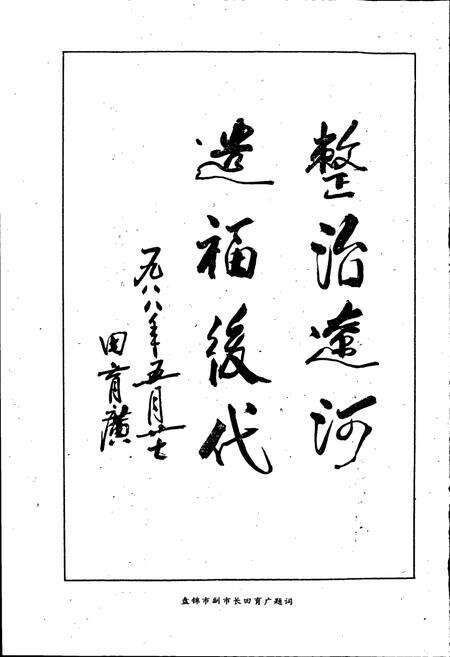 整治遼河
遗福後代
一九八八年五月廿七
田育廣
盘锦市副市长田育广题词